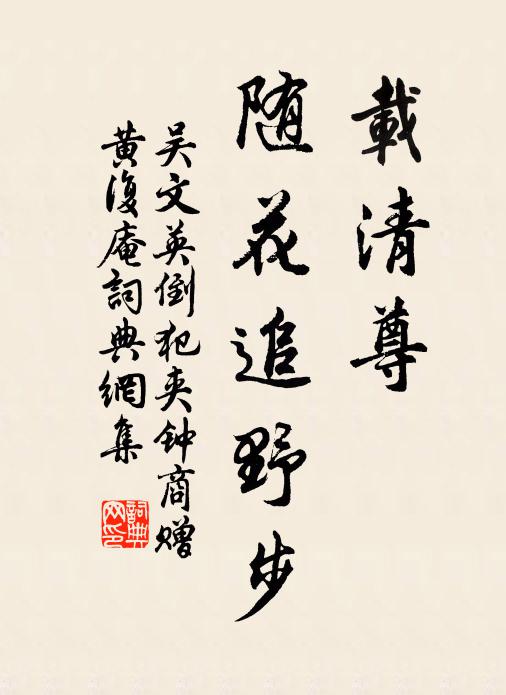 載清尊
随花追野步
吴文英倒犯夹钟商赠
黄復庵詞典網集
詞典网印